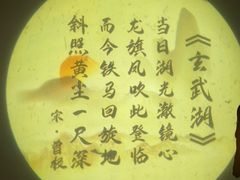 《玄武湖》
当日湖光澈镜心
龙旗凤吹此登临
而今铁马回旋地
斜照黄尘一尺深
宋·曾极